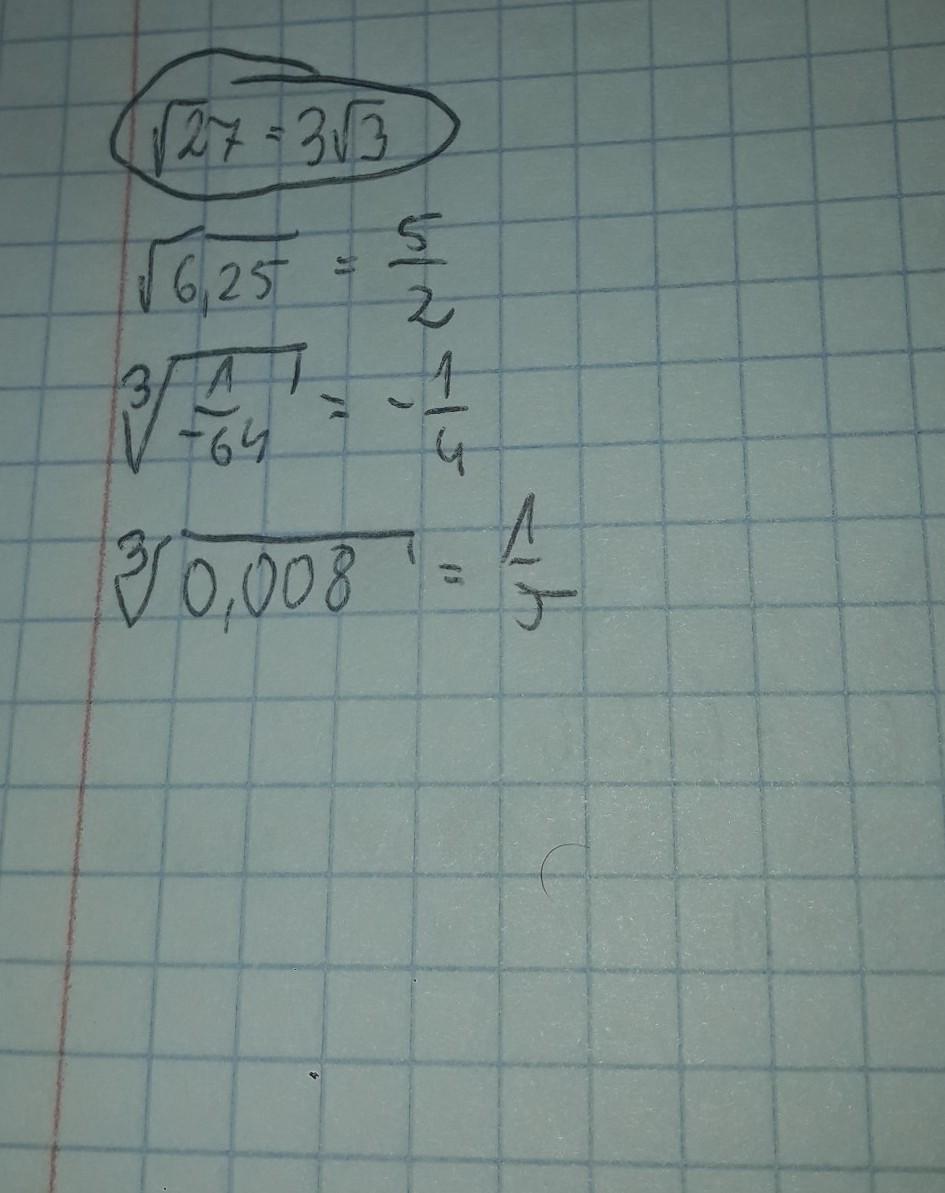 √27 = 3√3
√6,25 = 5/2
³√(1/-64) = -1/4
³√0,008 = 1/5